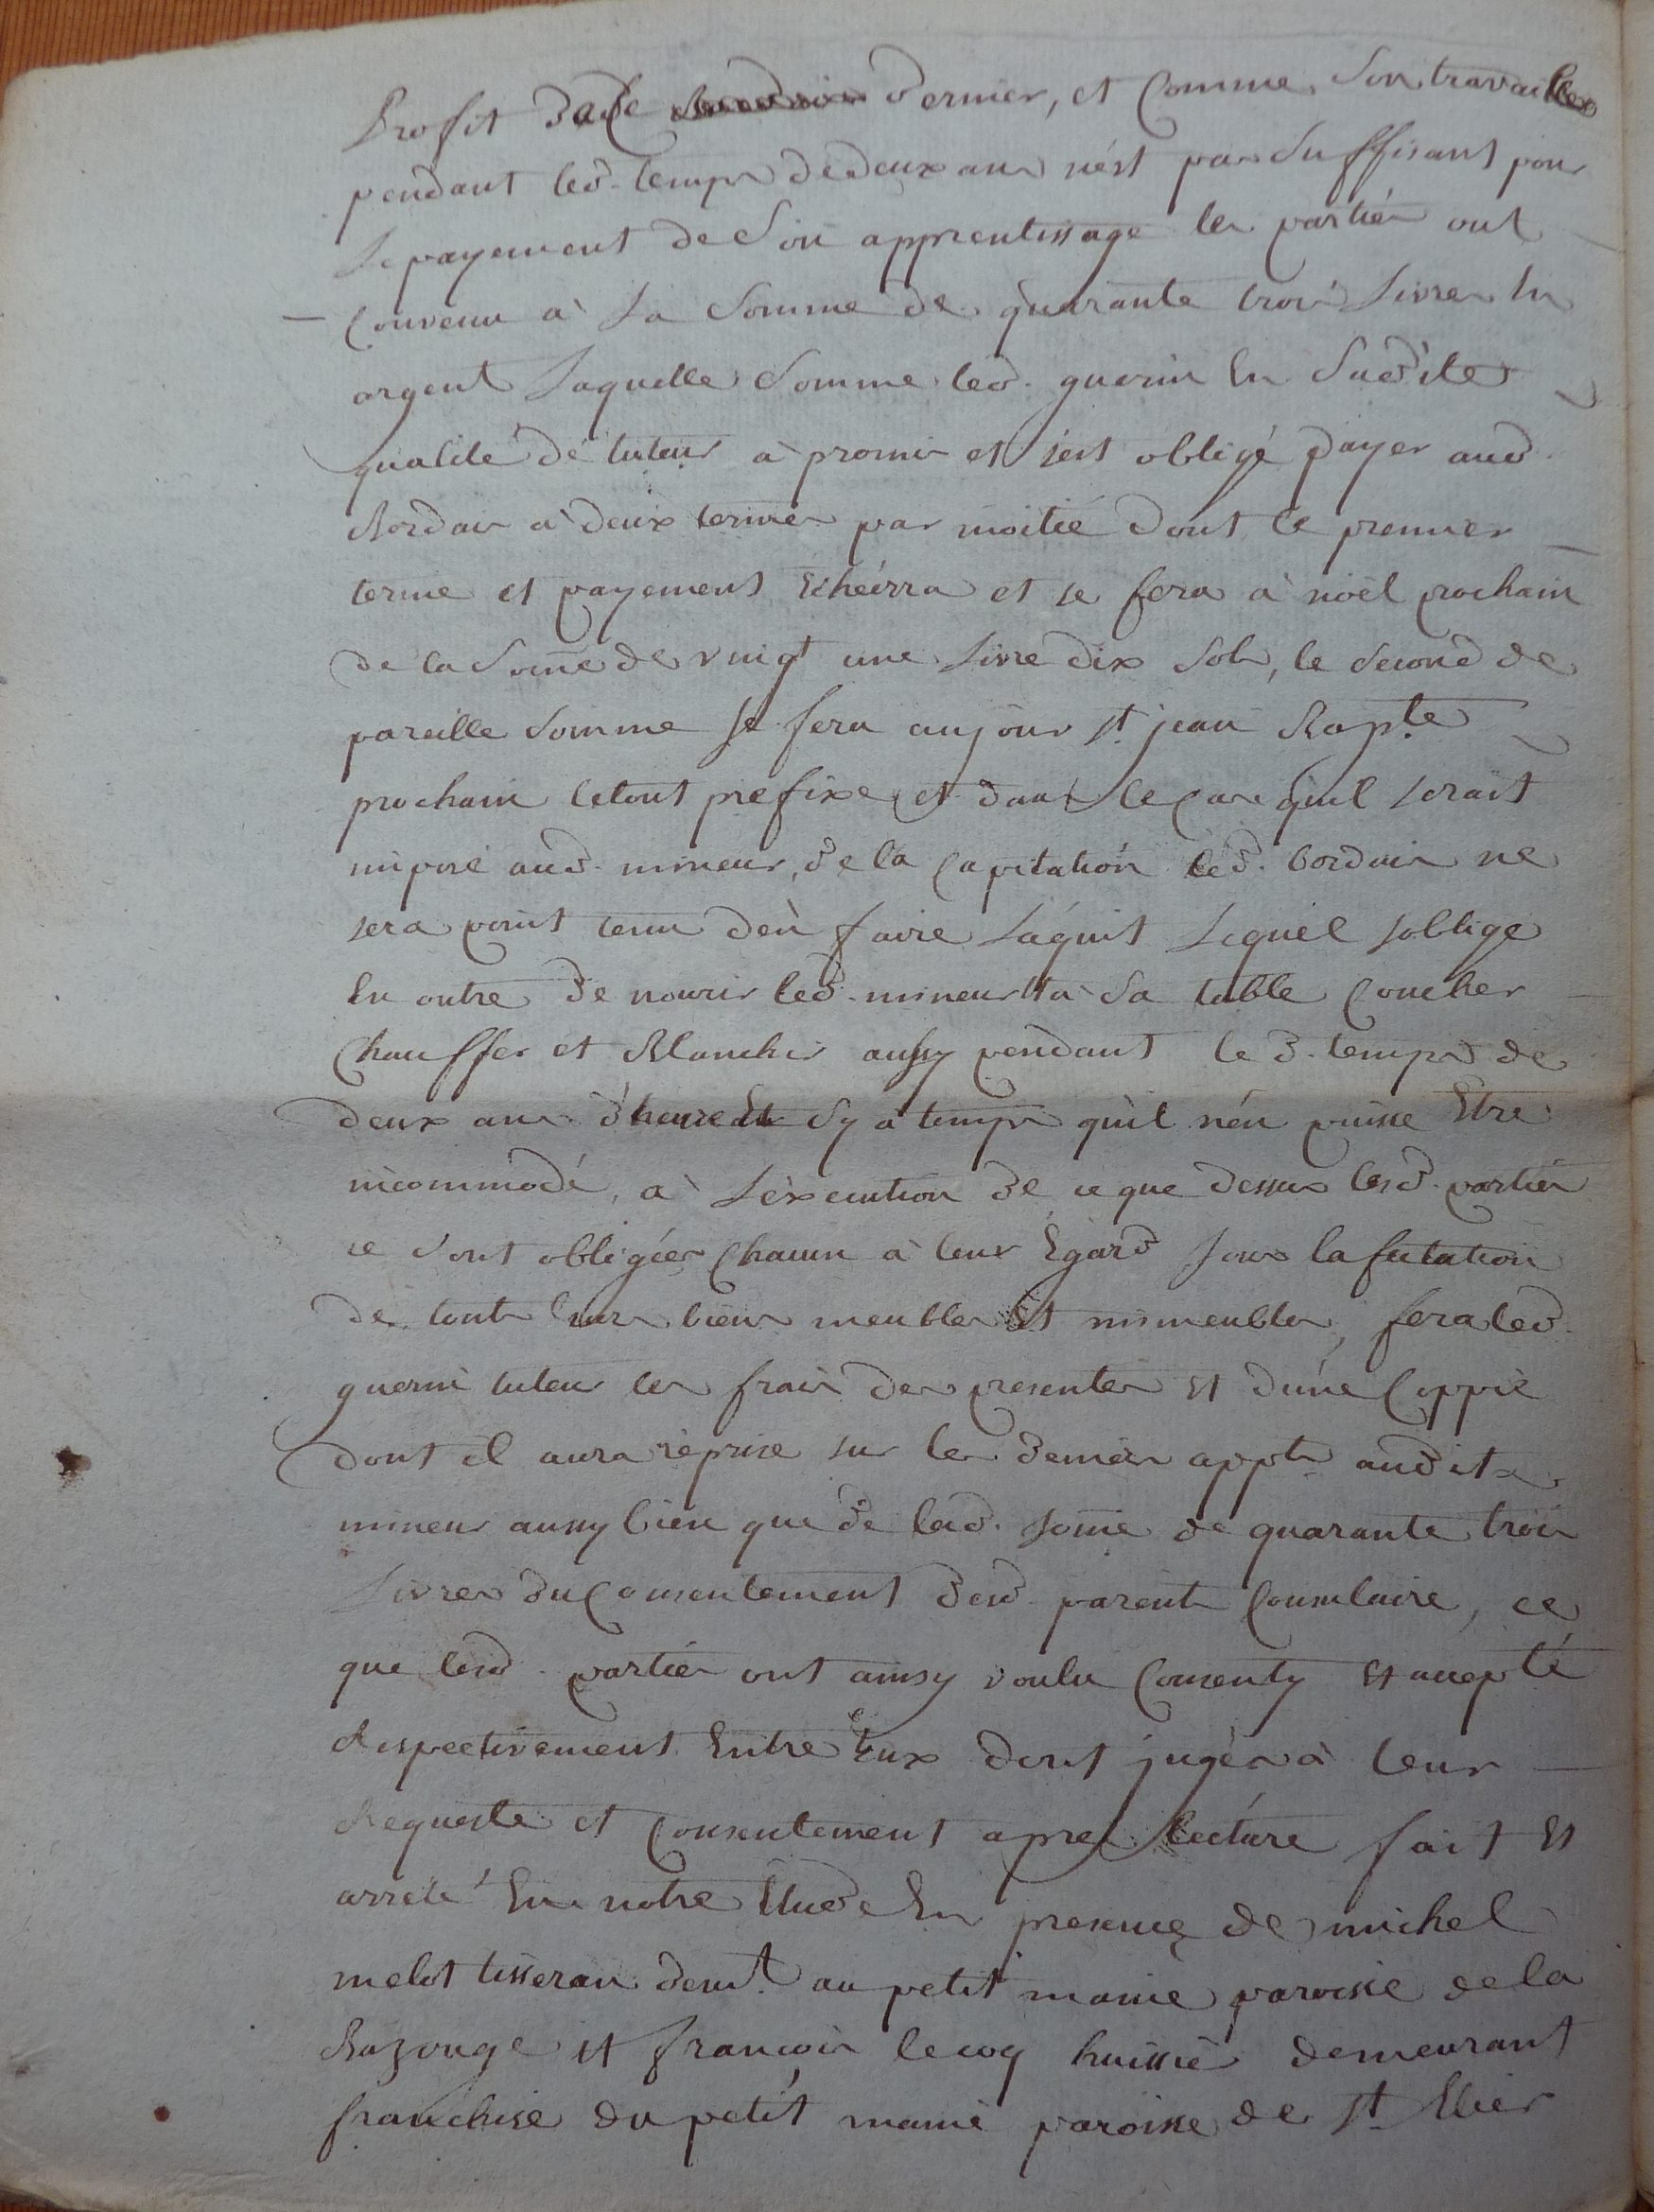 Profit dans dernier, et Comme Son travaille
pendant led. temps de deux ans nést pas Suffisant pour
le payement de Son apprentissage les partiés ont
Convenu à la Somme de quarante trois Livres En
argent Laquelle Somme led. guerin En Sudite
qualité de tuteur à promis et sest obligé payer aud.
Bordais à deux termes par moitié dont le premier
terme et payement Echéirra et se fera à noël prochain
de la Some de vingt une Livre dix Sols, le Second de
pareille Somme se fera au jour st. jean Bapte.
prochain le tout prefixe et dans le Cas quil serait
imposé aud. mineur, de la Capitation led. bordais ne
sera point tenu dèn faire Láquit Lequel soblige
En outre de nourir led. mineur à Sa table Coucher
Chauffer et Blanchir aussy pendant le d. temps de
deux ans d'heure Et Sy a temps quil nén puisse Etre
incommodé, à Léxecution de ce que dessus lesd. partiés
se Sont obligées Chacun à leur Egard sous
de touts leurs biens meubles Et immeubles, fera led.
guerin tuteur les frais des presentes Et dúne Coppie
dont il aura reprise sur les deniers appts. audit
mineur aussy bien que de lad. some de quarante trois
Livres du Consentement desd. parents Consulaire, ce
que lesd. partiés ont ainsy voulu Consenty Et accepté
Respectivement Entre Eux dont jugés à leur
Requeste et Consentement apres lecture fait Et
arreté En notre Etude En presence de michel
melot tisseran demt. au petit maine paroisse de la
Bazouge et françois lecoq huissié demeurant
franchise du petit maine paroisse de St. Ellier